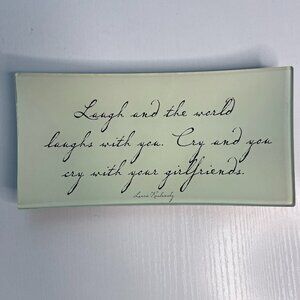 Laugh and the world
laughs with you. Cry and you
cry with your girlfriends.